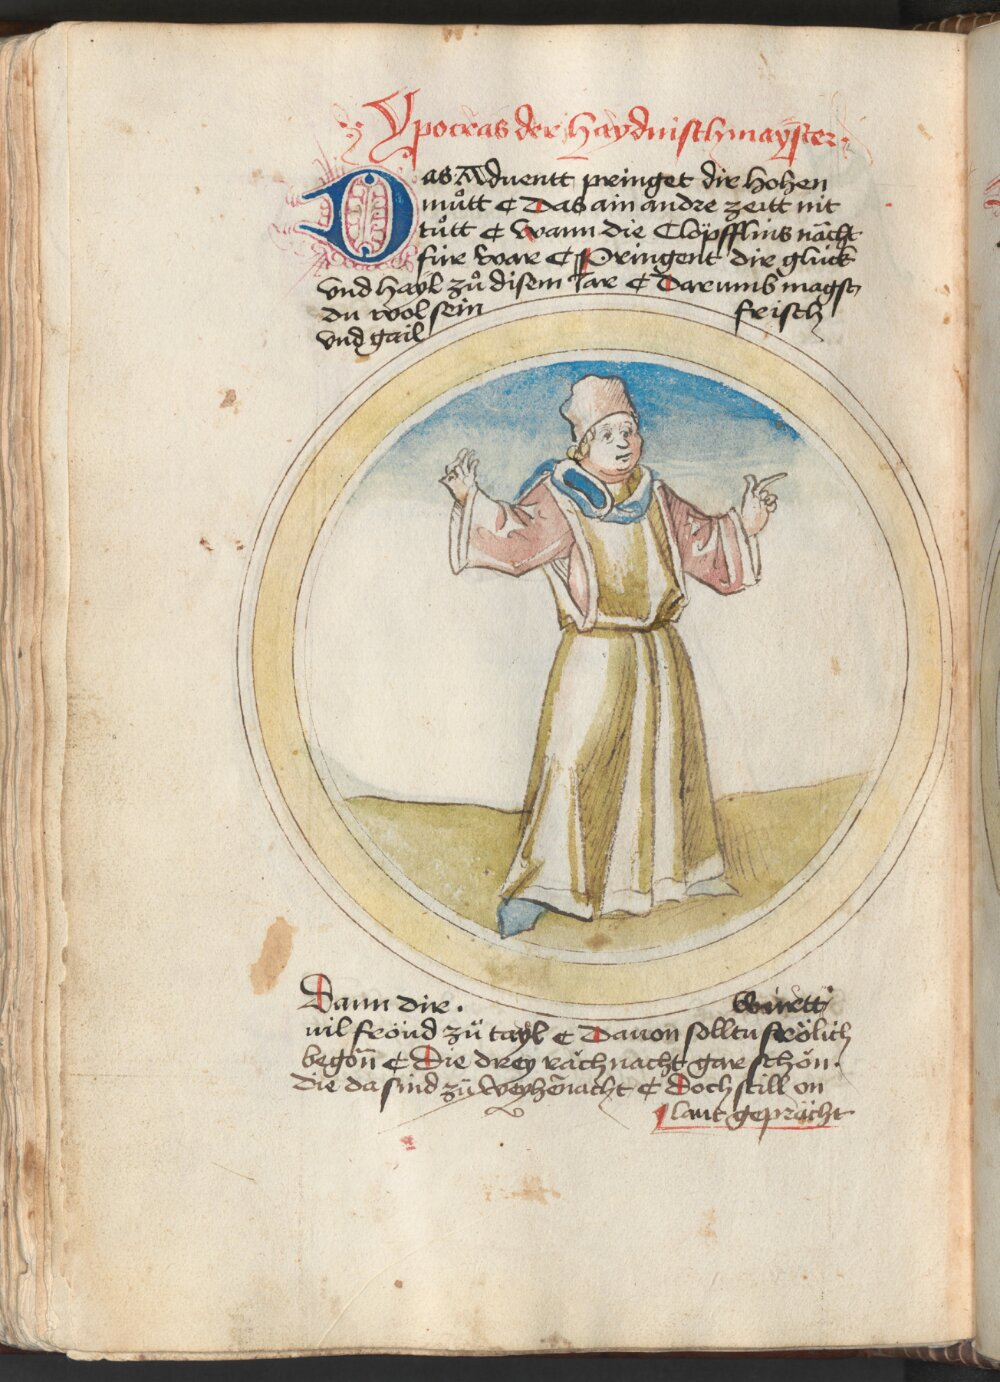 Ypocras der Haydnisch mayster
Das Aduentt pringet dir hohen
můtt ¢ Das ain andre zeitt nit
tůtt ¢ Wann die Clöpfflins nächt
für war ¢ Pringent dir glück
vnd hayl zů disem Jar ¢ Darumb magst
du wol sein frisch
vnd gail
Dann dir . Wirtt
vil frönd zů tayl ¢ Dauon solltu frölich
begön̄ ¢ Die drey räch nacht gar schön .
Die da sind zů Weyhen̄acht ¢ Doch still on
laut geprächt